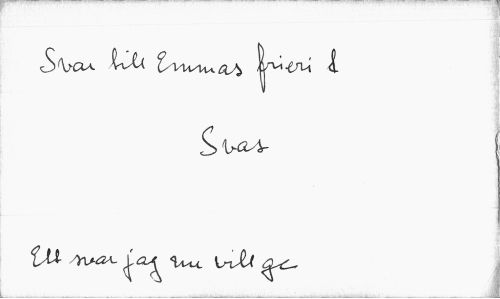 Svar till Emmas frieri d
Svar
Ett svar jag nu vill ge